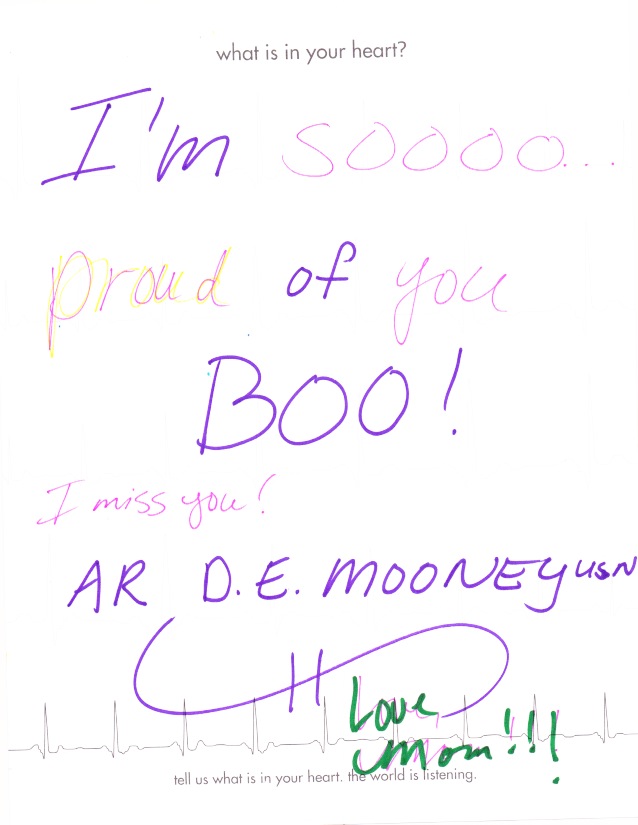 what is in your heart?
I'm soooo...
proud of you
BOO!
I miss you!
AR D.E. MOONEY USN
Love,
Mom!!!
tell us what is in your heart. the world is listening.